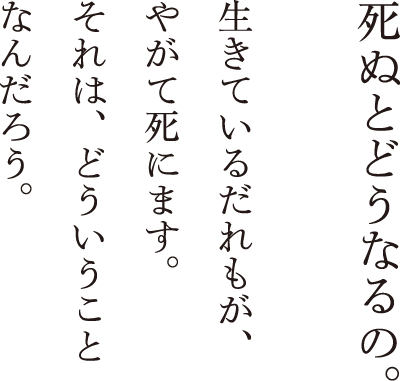 死ぬとどうなるの。
生きているだれもが、
やがて死にます。
それは、どういうこと
なんだろう。